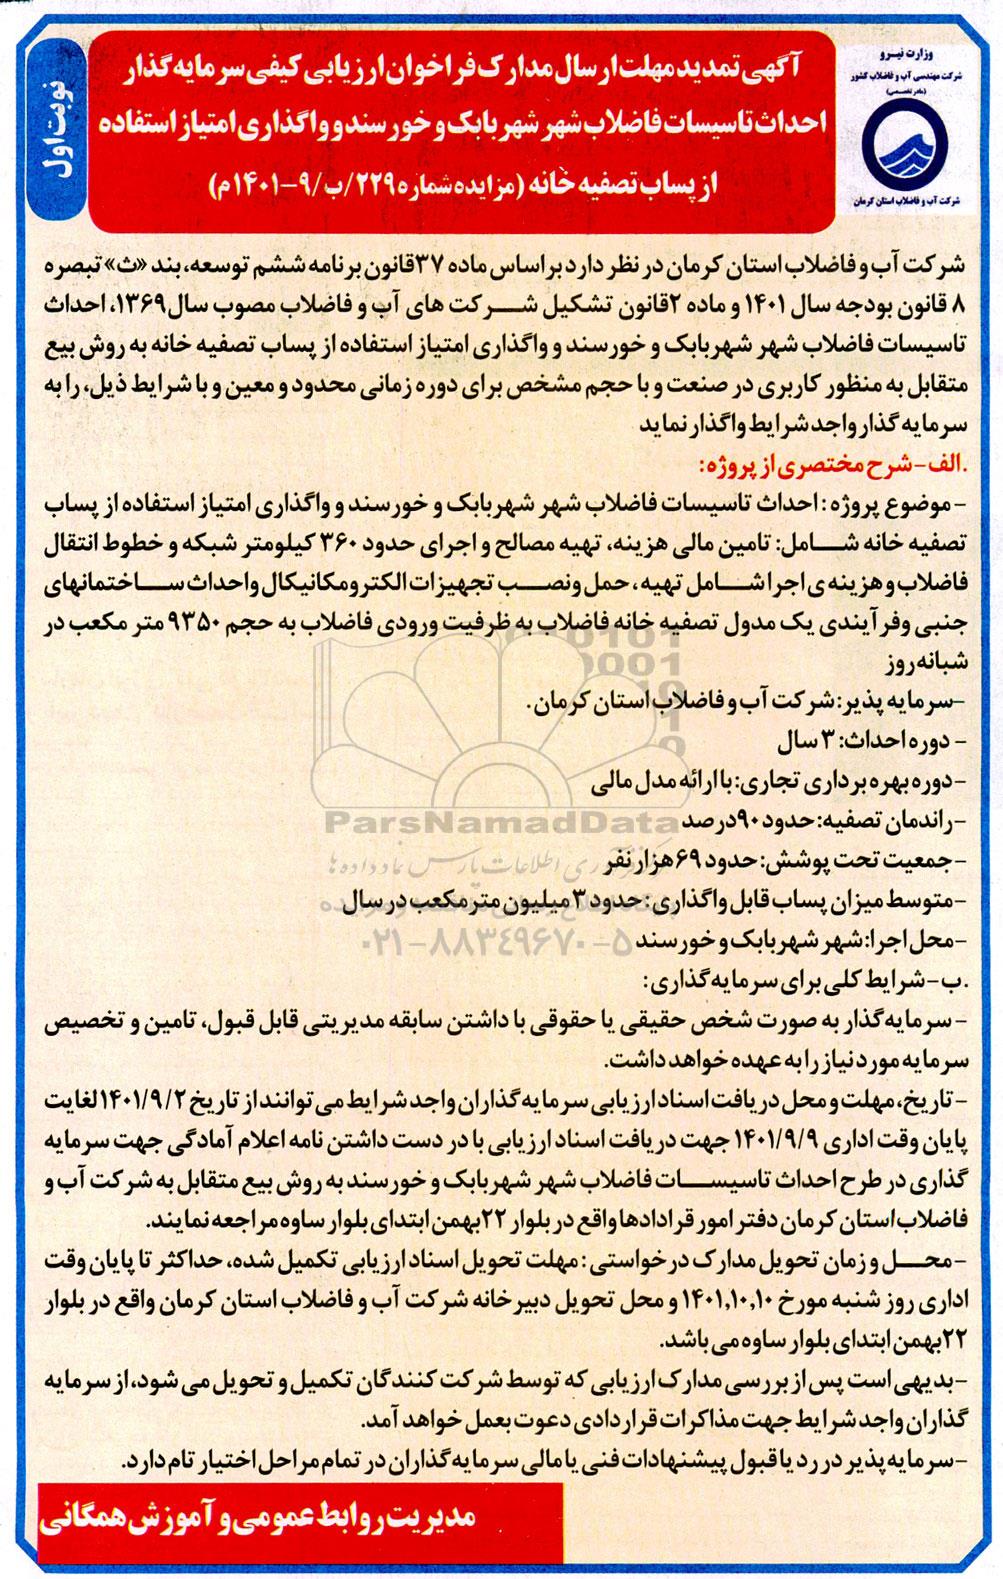 وزارت نیرو
شرکت مهندسی آب و فاضلاب کشور
(مادر تخصصی)
شرکت آب و فاضلاب استان کرمان
نوبت اول
آگهی تمدید مهلت ارسال مدارک فراخوان ارزیابی کیفی سرمایه گذار
احداث تاسیسات فاضلاب شهر شهربابک و خورسند و واگذاری امتیاز استفاده
از پساب تصفیه خانه (مزایده شماره ۲۲۹/ب/۹-۱۴۰۱م)
شرکت آب و فاضلاب استان کرمان در نظر دارد بر اساس ماده ۳۷ قانون برنامه ششم توسعه، بند «ث» تبصره
۸ قانون بودجه سال ۱۴۰۱ و ماده ۲ قانون تشکیل شرکت های آب و فاضلاب مصوب سال ۱۳۶۹، احداث
تاسیسات فاضلاب شهر شهربابک و خورسند و واگذاری امتیاز استفاده از پساب تصفیه خانه به روش بیع
متقابل به منظور کاربری در صنعت و با حجم مشخص برای دوره زمانی محدود و معین و با شرایط ذیل، را به
سرمایه گذار واجد شرایط واگذار نماید
.الف- شرح مختصری از پروژه:
- موضوع پروژه: احداث تاسیسات فاضلاب شهر شهربابک و خورسند و واگذاری امتیاز استفاده از پساب
تصفیه خانه شامل: تامین مالی هزینه، تهیه مصالح و اجرای حدود ۳۶۰ کیلومتر شبکه و خطوط انتقال
فاضلاب و هزینه ی اجرا شامل تهیه، حمل ونصب تجهیزات الکترومکانیکال واحداث ساختمانهای
جنبی وفرآیندی یک مدول تصفیه خانه فاضلاب به ظرفیت ورودی فاضلاب به حجم ۹۳۵۰ متر مکعب در
شبانه روز
-سرمایه پذیر: شرکت آب و فاضلاب استان کرمان.
- دوره احداث: ۳ سال
-دوره بهره برداری تجاری: با ارائه مدل مالی
-راندمان تصفیه: حدود ۹۰درصد
ParsNamadData
-جمعیت تحت پوشش: حدود ۶۹ هزار نفر
-متوسط میزان پساب قابل واگذاری: حدود ۳ میلیون متر مکعب در سال
-محل اجرا: شهر شهربابک و خورسند
۰۲۱-۸۸۳۴۹۶۷۰-۵
.ب- شرایط کلی برای سرمایه گذاری:
- سرمایه گذار به صورت شخص حقیقی یا حقوقی با داشتن سابقه مدیریتی قابل قبول، تامین و تخصیص
سرمایه مورد نیاز را به عهده خواهد داشت.
- تاریخ، مهلت و محل دریافت اسناد ارزیابی سرمایه گذاران واجد شرایط می توانند از تاریخ ۱۴۰۱/۹/۲ لغایت
پایان وقت اداری ۱۴۰۱/۹/۹ جهت دریافت اسناد ارزیابی با در دست داشتن نامه اعلام آمادگی جهت سرمایه
گذاری در طرح احداث تاسیسات فاضلاب شهر شهربابک و خورسند به روش بیع متقابل به شرکت آب و
فاضلاب استان کرمان دفتر امور قرادادها واقع در بلوار ۲۲بهمن ابتدای بلوار ساوه مراجعه نمایند.
-محل و زمان تحویل مدارک درخواستی: مهلت تحویل اسناد ارزیابی تکمیل شده، حداکثر تا پایان وقت
اداری روز شنبه مورخ ۱۴۰۱,۱۰,۱۰ و محل تحویل دبیرخانه شرکت آب و فاضلاب استان کرمان واقع در بلوار
۲۲بهمن ابتدای بلوار ساوه می باشد.
-بدیهی است پس از بررسی مدارک ارزیابی که توسط شرکت کنندگان تکمیل و تحویل می شود، از سرمایه
گذاران واجد شرایط جهت مذاکرات قراردادی دعوت بعمل خواهد آمد.
-سرمایه پذیر در رد یا قبول پیشنهادات فنی یا مالی سرمایه گذاران در تمام مراحل اختیار تام دارد.
مدیریت روابط عمومی و آموزش همگانی